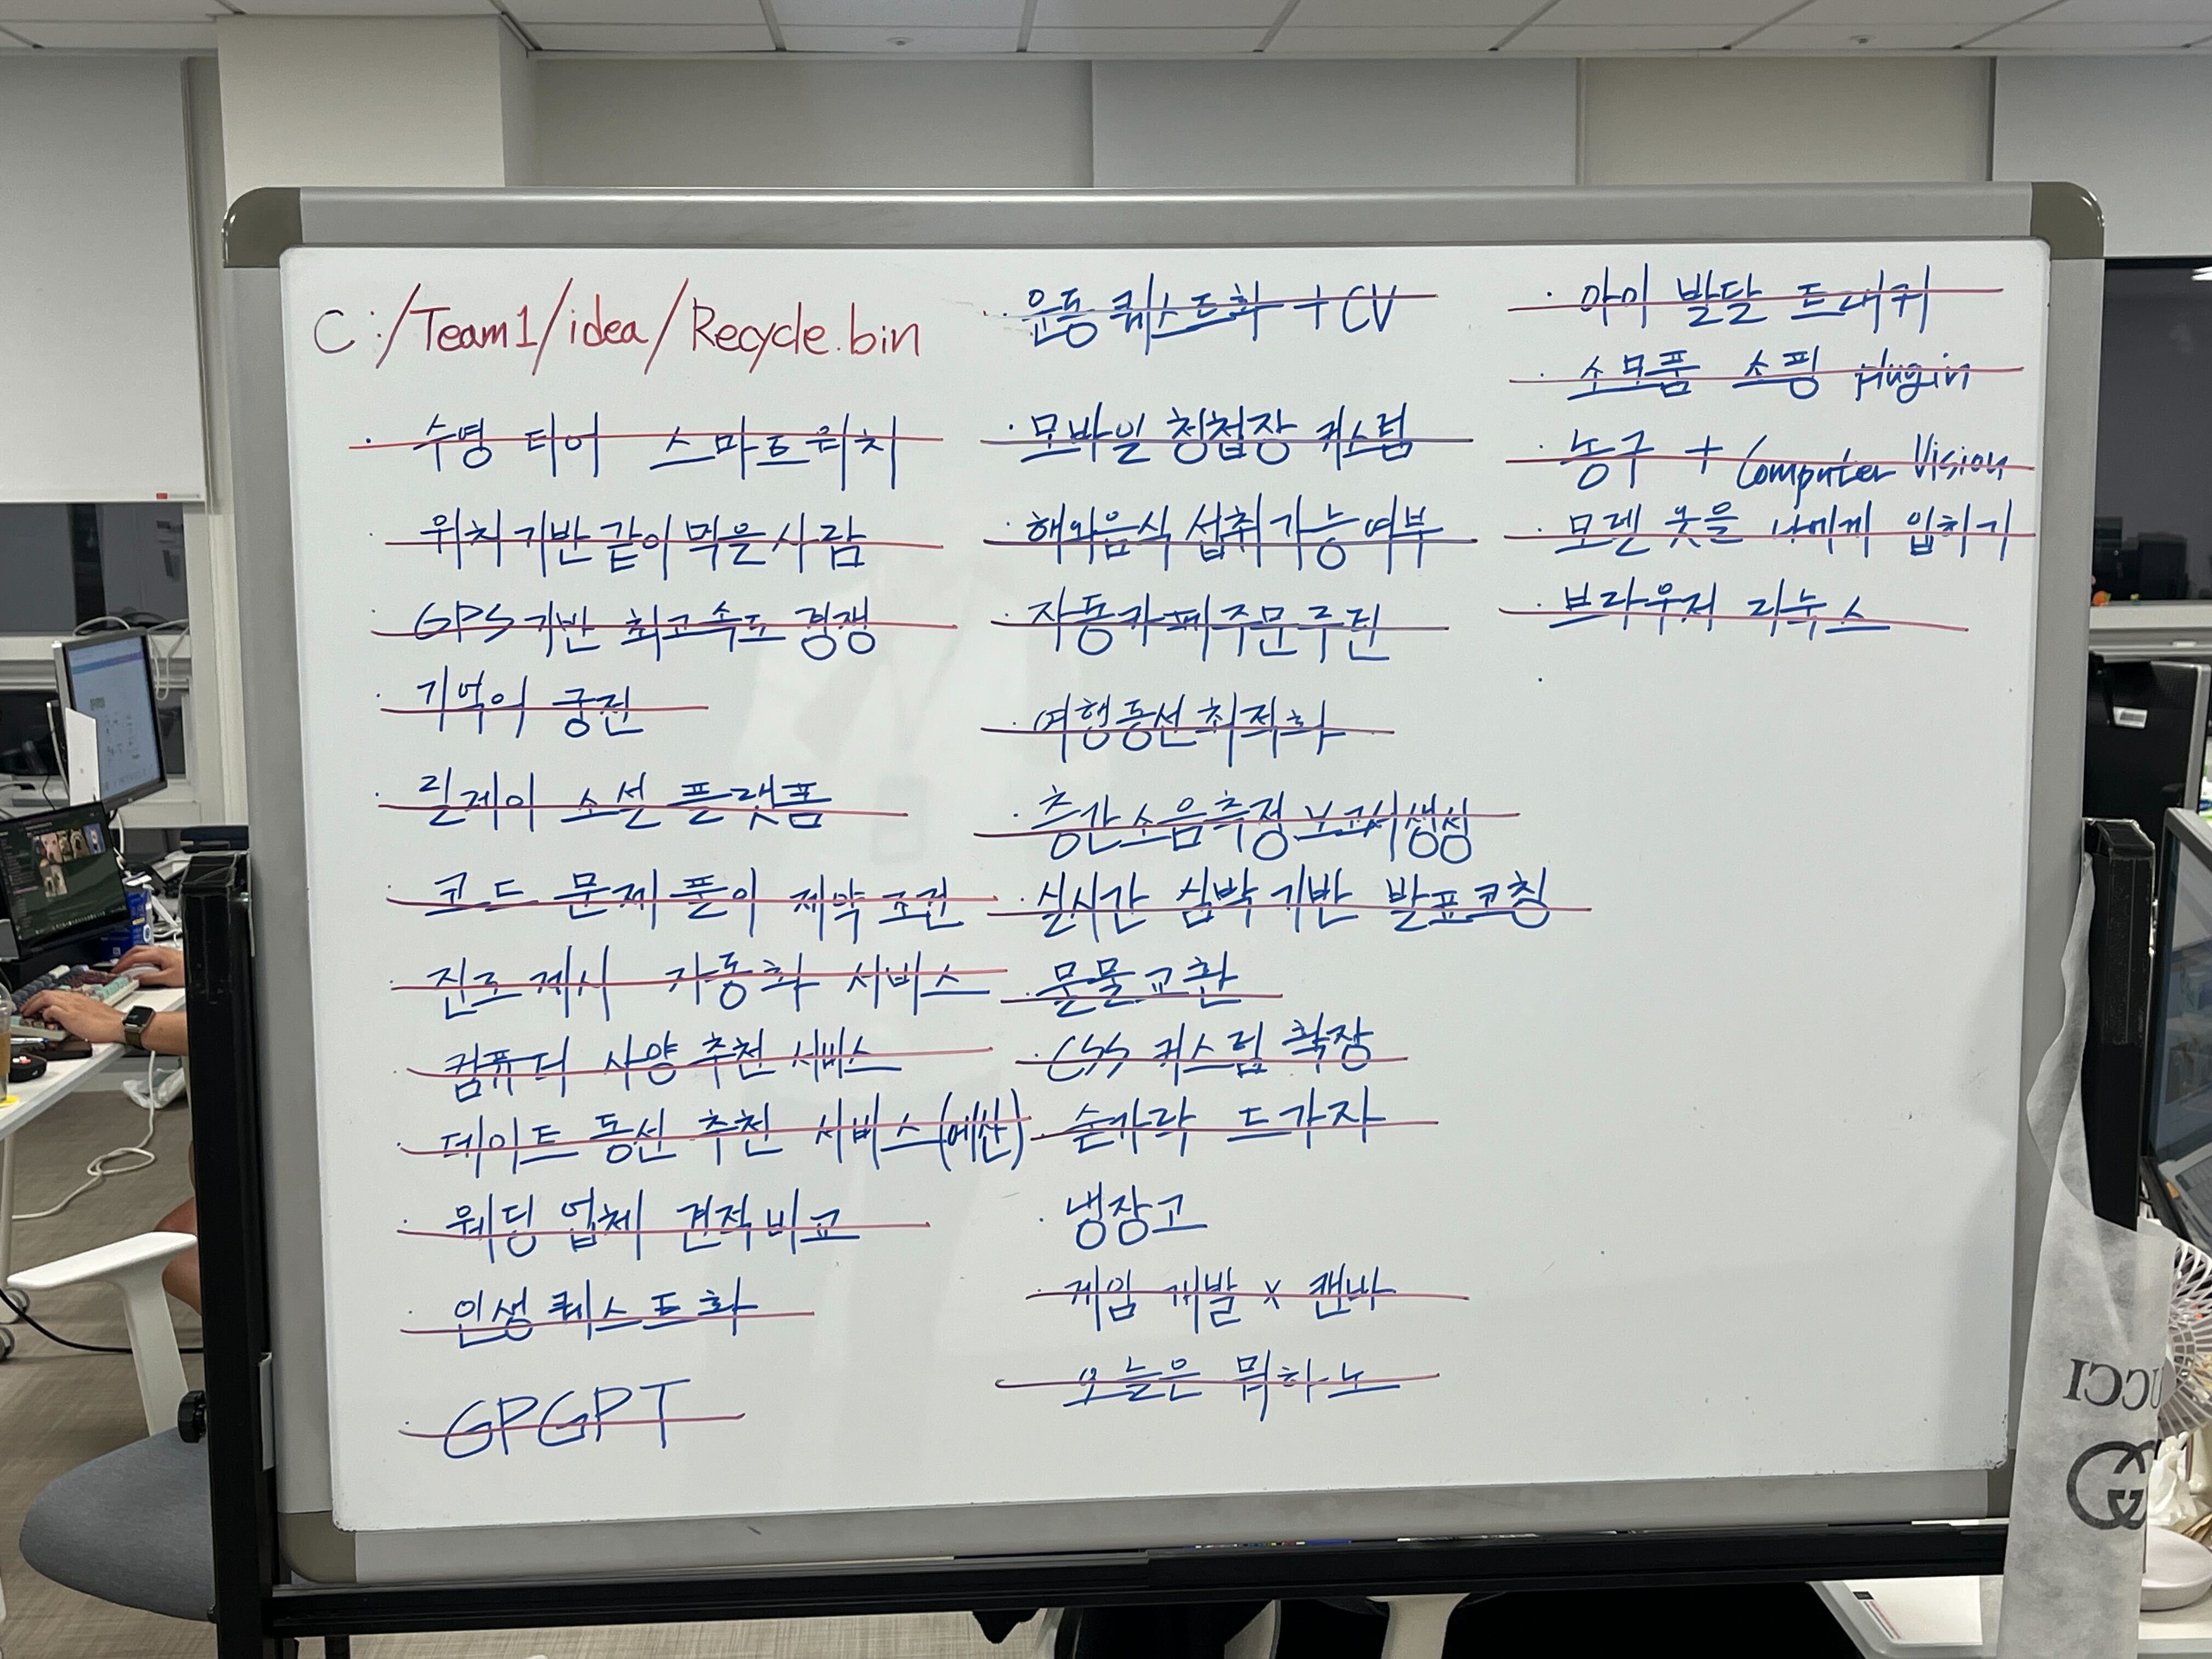 C:/Team1/idea/Recycle.bin
· 수영 티어 스마트워치
· 위치기반 같이 먹을 사람
· GPS기반 최고속도 경쟁
· 기억의 궁전
· 릴레이 소설 플랫폼
· 코드 문제 풀이 제약 조건
· 진로 제시 자동화 서비스
· 컴퓨터 사양 추천 서비스
· 데이트 동선 추천 서비스(예산)
· 웨딩 업체 견적비교
· 인생 퀘스트화
· GPGPT
· 운동 퀘스트화 + CV
· 모바일 청첩장 커스텀
· 해외음식 섭취가능여부
· 자동카페주문루틴
· 여행동선최적화
· 층간소음측정보고서생성
· 실시간 심박기반 발표코칭
· 물물교환
· CSS 커스텀 확장
· 숟가락 드가자
· 냉장고
· 게임 개발 x 캔바
· 오늘은 뭐하노
· 아이 발달 트래커
· 소모품 쇼핑 plugin
· 농구 + Computer Vision
· 모델 옷을 나에게 입히기
· 브라우저 리눅스
UCCI